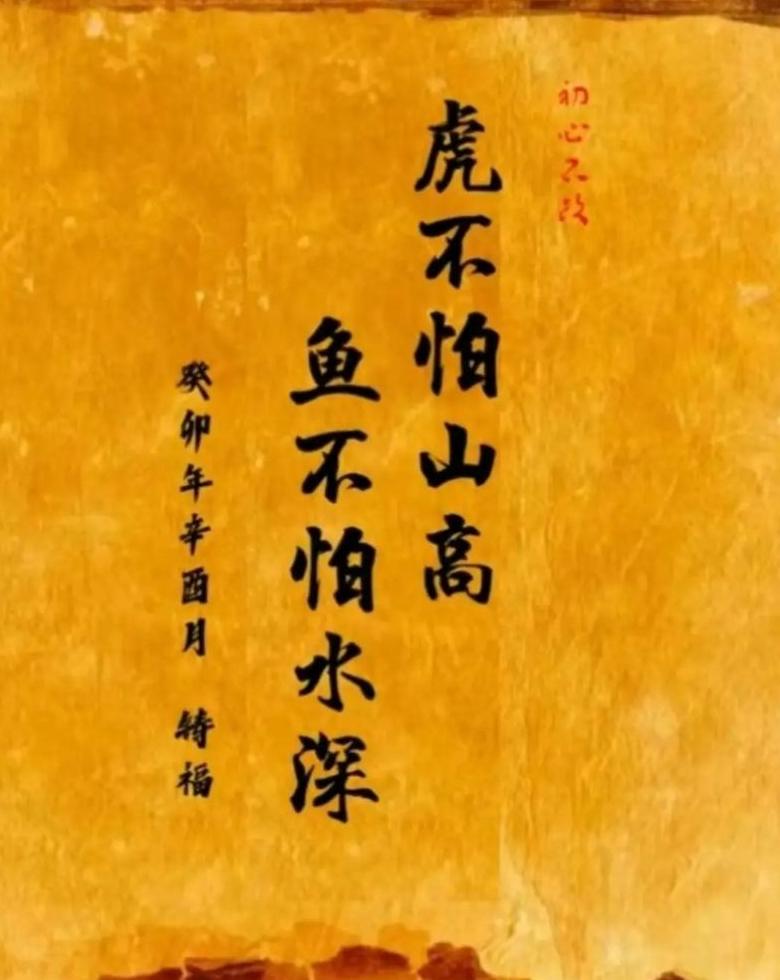 初心不改
虎不怕山高
鱼不怕水深
癸卯年辛酉月 特福